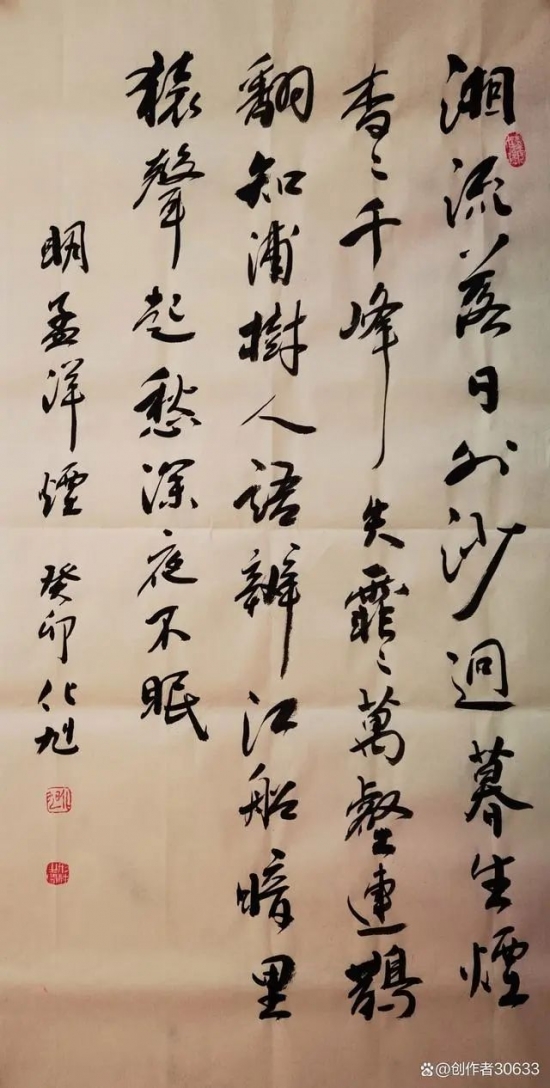 湘流落日外沙迥暮生煙
杳〻千峰失霏〻萬壑連鵲
翻知浦樹人語辨江船暗里
猿聲起愁深夜不眠
明孟洋煙 癸卯化旭
@创作者30633